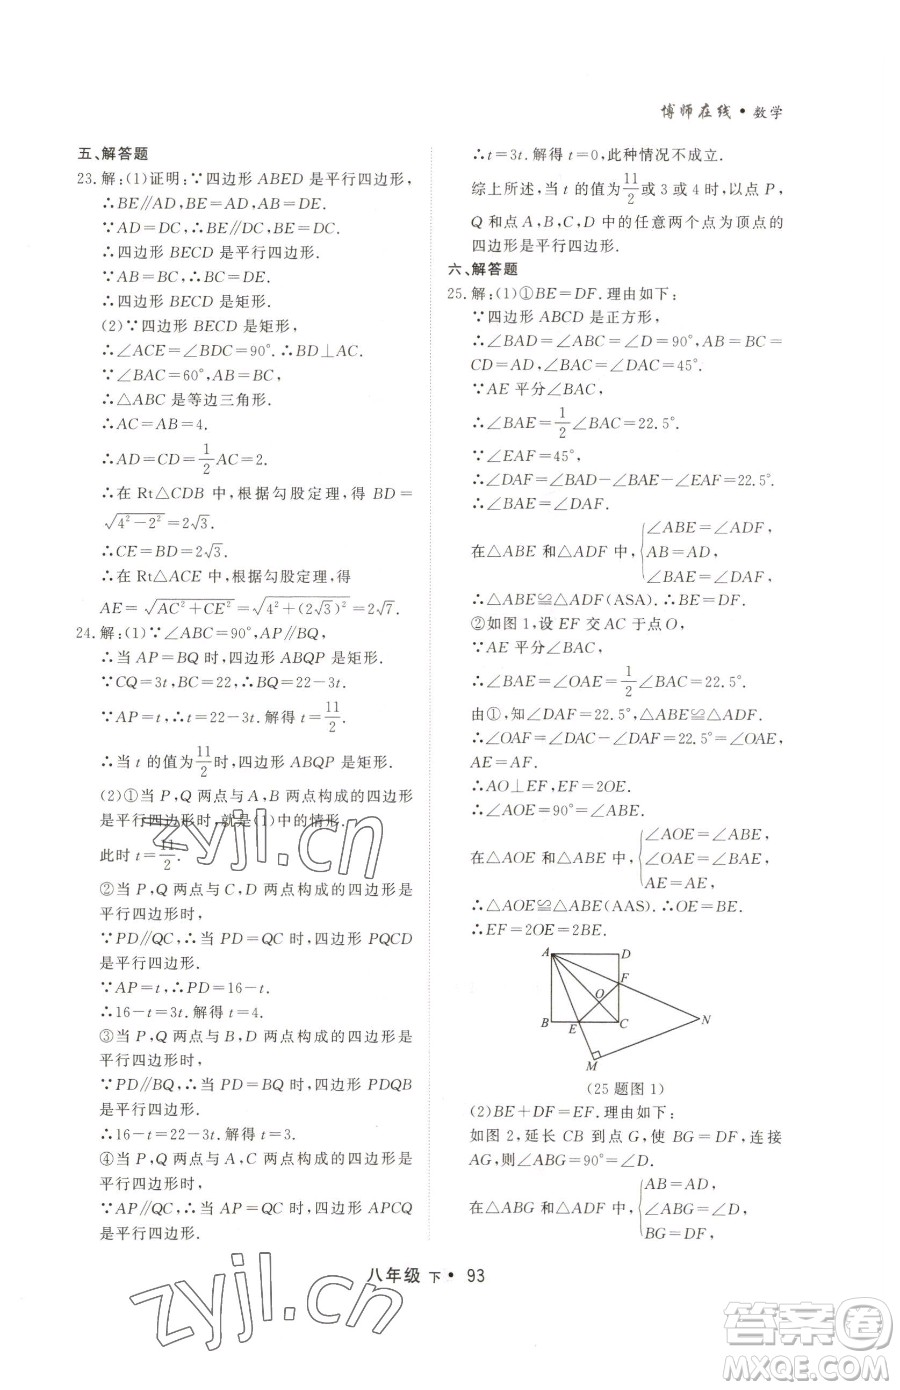 博师在线·数学
五、解答题
23. 解:(1)证明:∵四边形 ABED 是平行四边形,
∴BE∥AD,BE=AD,AB=DE.
∵AD=DC,∴BE∥DC,BE=DC.
∴四边形 BECD 是平行四边形.
∵AB=BC,∴BC=DE.
∴四边形 BECD 是矩形.
(2)∵四边形 BECD 是矩形,
∴∠ACE=∠BDC=90°.∴BD⊥AC.
∵∠BAC=60°,AB=BC,
∴△ABC 是等边三角形.
∴AC=AB=4.
∴AD=CD=1/2AC=2.
∴在 Rt△CDB 中,根据勾股定理,得 BD=
√(4²-2²)=2√3.
∴CE=BD=2√3.
∴在 Rt△ACE 中,根据勾股定理,得
AE=√(AC²+CE²)=√(4²+(2√3)²)=2√7.
24. 解:(1)∵∠ABC=90°,AP∥BQ,
∴当 AP=BQ 时,四边形 ABQP 是矩形.
∵CQ=3t,BC=22,∴BQ=22-3t.
∵AP=t,∴t=22-3t.解得 t=11/2.
∴当 t 的值为11/2时,四边形 ABQP 是矩形.
(2)①当 P,Q 两点与 A,B 两点构成的四边形
是平行四边形时,就是(1)中的情形.
此时 t=11/2.
②当 P,Q 两点与 C,D 两点构成的四边形是
平行四边形时,
∵PD∥QC,∴当 PD=QC 时,四边形 PQCD
是平行四边形.
∵AP=t,∴PD=16-t.
∴16-t=3t.解得 t=4.
③当 P,Q 两点与 B,D 两点构成的四边形是
平行四边形时,
∵PD∥BQ,∴当 PD=BQ 时,四边形 PDQB
是平行四边形.
∴16-t=22-3t.解得 t=3.
④当 P,Q 两点与A,C 两点构成的四边形是
平行四边形时,
∵AP∥QC,∴当 AP=QC 时,四边形 APCQ
是平行四边形.
∴t=3t.解得 t=0,此种情况不成立.
综上所述,当 t 的值为11/2或 3 或 4 时,以点 P,
Q 和点 A,B,C,D 中的任意两个点为顶点的
四边形是平行四边形.
六、解答题
25. 解:(1)①BE=DF.理由如下:
∵四边形 ABCD 是正方形,
∴∠BAD=∠ABC=∠D=90°,AB=BC=
CD=AD,∠BAC=∠DAC=45°.
∵AE 平分∠BAC,
∴∠BAE=1/2∠BAC=22.5°.
∵∠EAF=45°,
∴∠DAF=∠BAD-∠BAE-∠EAF=22.5°.
∴∠BAE=∠DAF.
在△ABE 和△ADF 中,{∠ABE=∠ADF,
AB=AD,
∠BAE=∠DAF,
∴△ABE≌△ADF(ASA).∴BE=DF.
②如图 1,设 EF 交 AC 于点 O,
∵AE 平分∠BAC,
∴∠BAE=∠OAE=1/2∠BAC=22.5°.
由①,知∠DAF=22.5°,△ABE≌△ADF.
∴∠OAF=∠DAC-∠DAF=22.5°=∠OAE,
AE=AF.
∴AO⊥EF,EF=2OE.
∴∠AOE=90°=∠ABE.
在△AOE 和△ABE 中,{∠AOE=∠ABE,
∠OAE=∠BAE,
AE=AE,
∴△AOE≌△ABE(AAS).∴OE=BE.
∴EF=2OE=2BE.
A D F O B E C N M
(25 题图 1)
(2)BE+DF=EF.理由如下:
如图 2,延长 CB 到点 G,使 BG=DF,连接
AG,则∠ABG=90°=∠D.
在△ABG 和△ADF 中,{AB=AD,
∠ABG=∠D,
BG=DF,
八年级 下·93
zyjl.cn
zyjl.cn
答案圈
MXQE.COM